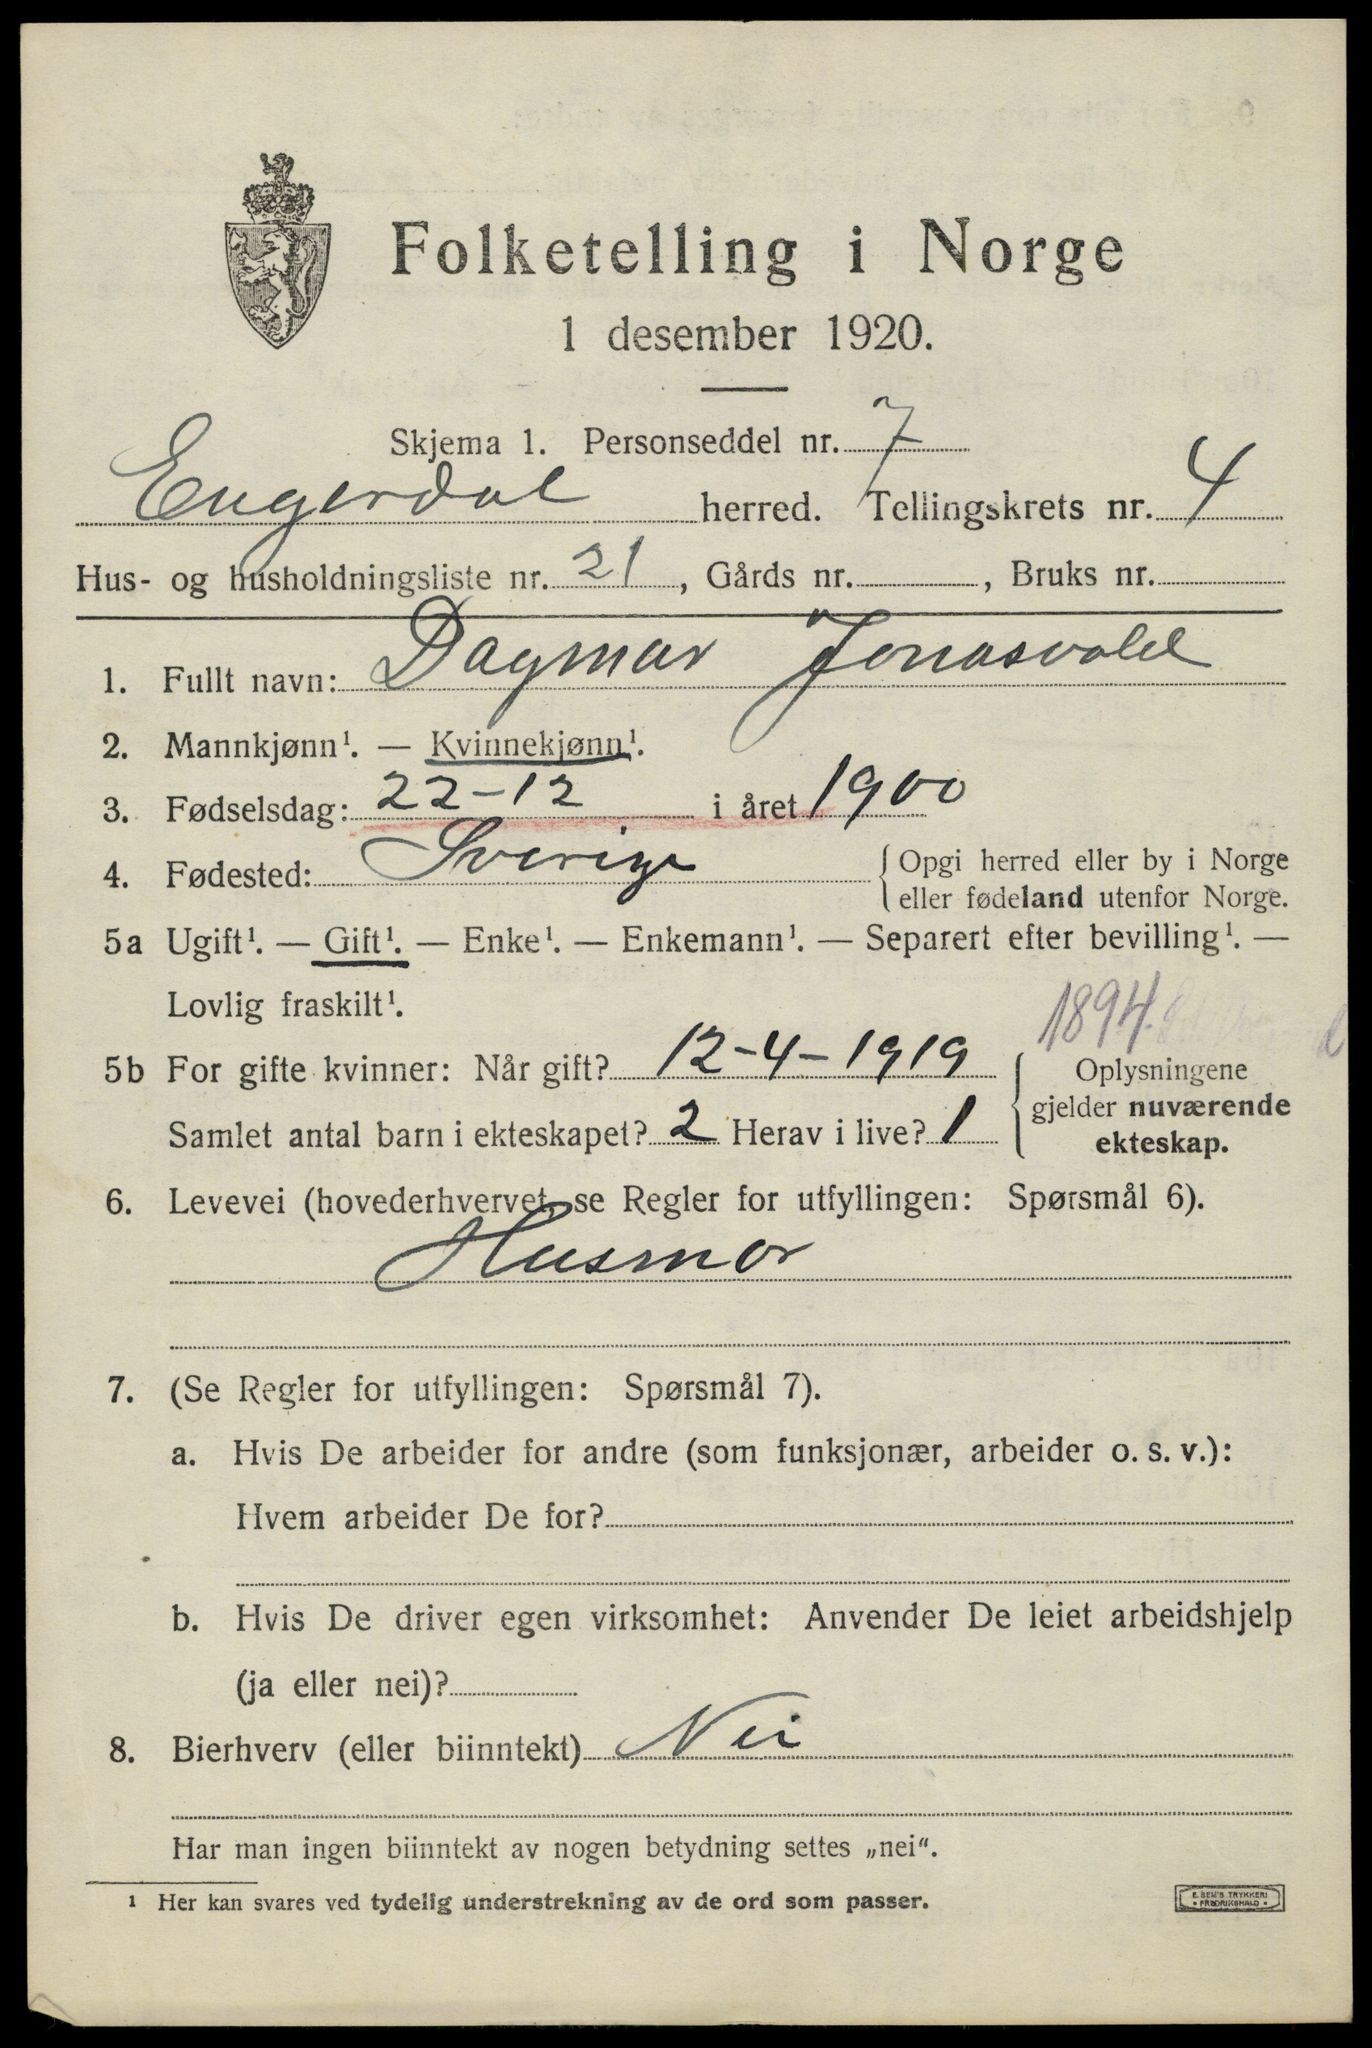 Folketelling i Norge
1 desember 1920.
Skjema 1. Personseddel nr. 7
Engerdal herred. Tellingskrets nr. 4
Hus- og husholdningsliste nr. 21, Gårds nr. , Bruks nr.
1. Fullt navn: Dagmar Jonasvold
2. Mannkjønn¹. — Kvinnekjønn¹.
3. Fødselsdag: 22-12 i året 1900
4. Fødested: Sverige { Opgi herred eller by i Norge
eller fødeland utenfor Norge.
5a Ugift¹. — Gift¹. — Enke¹. — Enkemann¹. — Separert efter bevilling¹. —
Lovlig fraskilt¹.
1894.
5b For gifte kvinner: Når gift? 12-4-1919 Oplysningene
gjelder nuværende
Samlet antal barn i ekteskapet? 2 Herav i live? 1 ekteskap.
6. Levevei (hovederhvervet, se Regler for utfyllingen: Spørsmål 6).
Husmor
7. (Se Regler for utfyllingen: Spørsmål 7).
a. Hvis De arbeider for andre (som funksjonær, arbeider o. s. v.):
Hvem arbeider De for?
b. Hvis De driver egen virksomhet: Anvender De leiet arbeidshjelp
(ja eller nei)?
8. Bierhverv (eller biinntekt) Nei
Har man ingen biinntekt av nogen betydning settes „nei“.
¹ Her kan svares ved tydelig understrekning av de ord som passer.
E. SEM'S TRYKKERI
• FREDRIKSHALD •